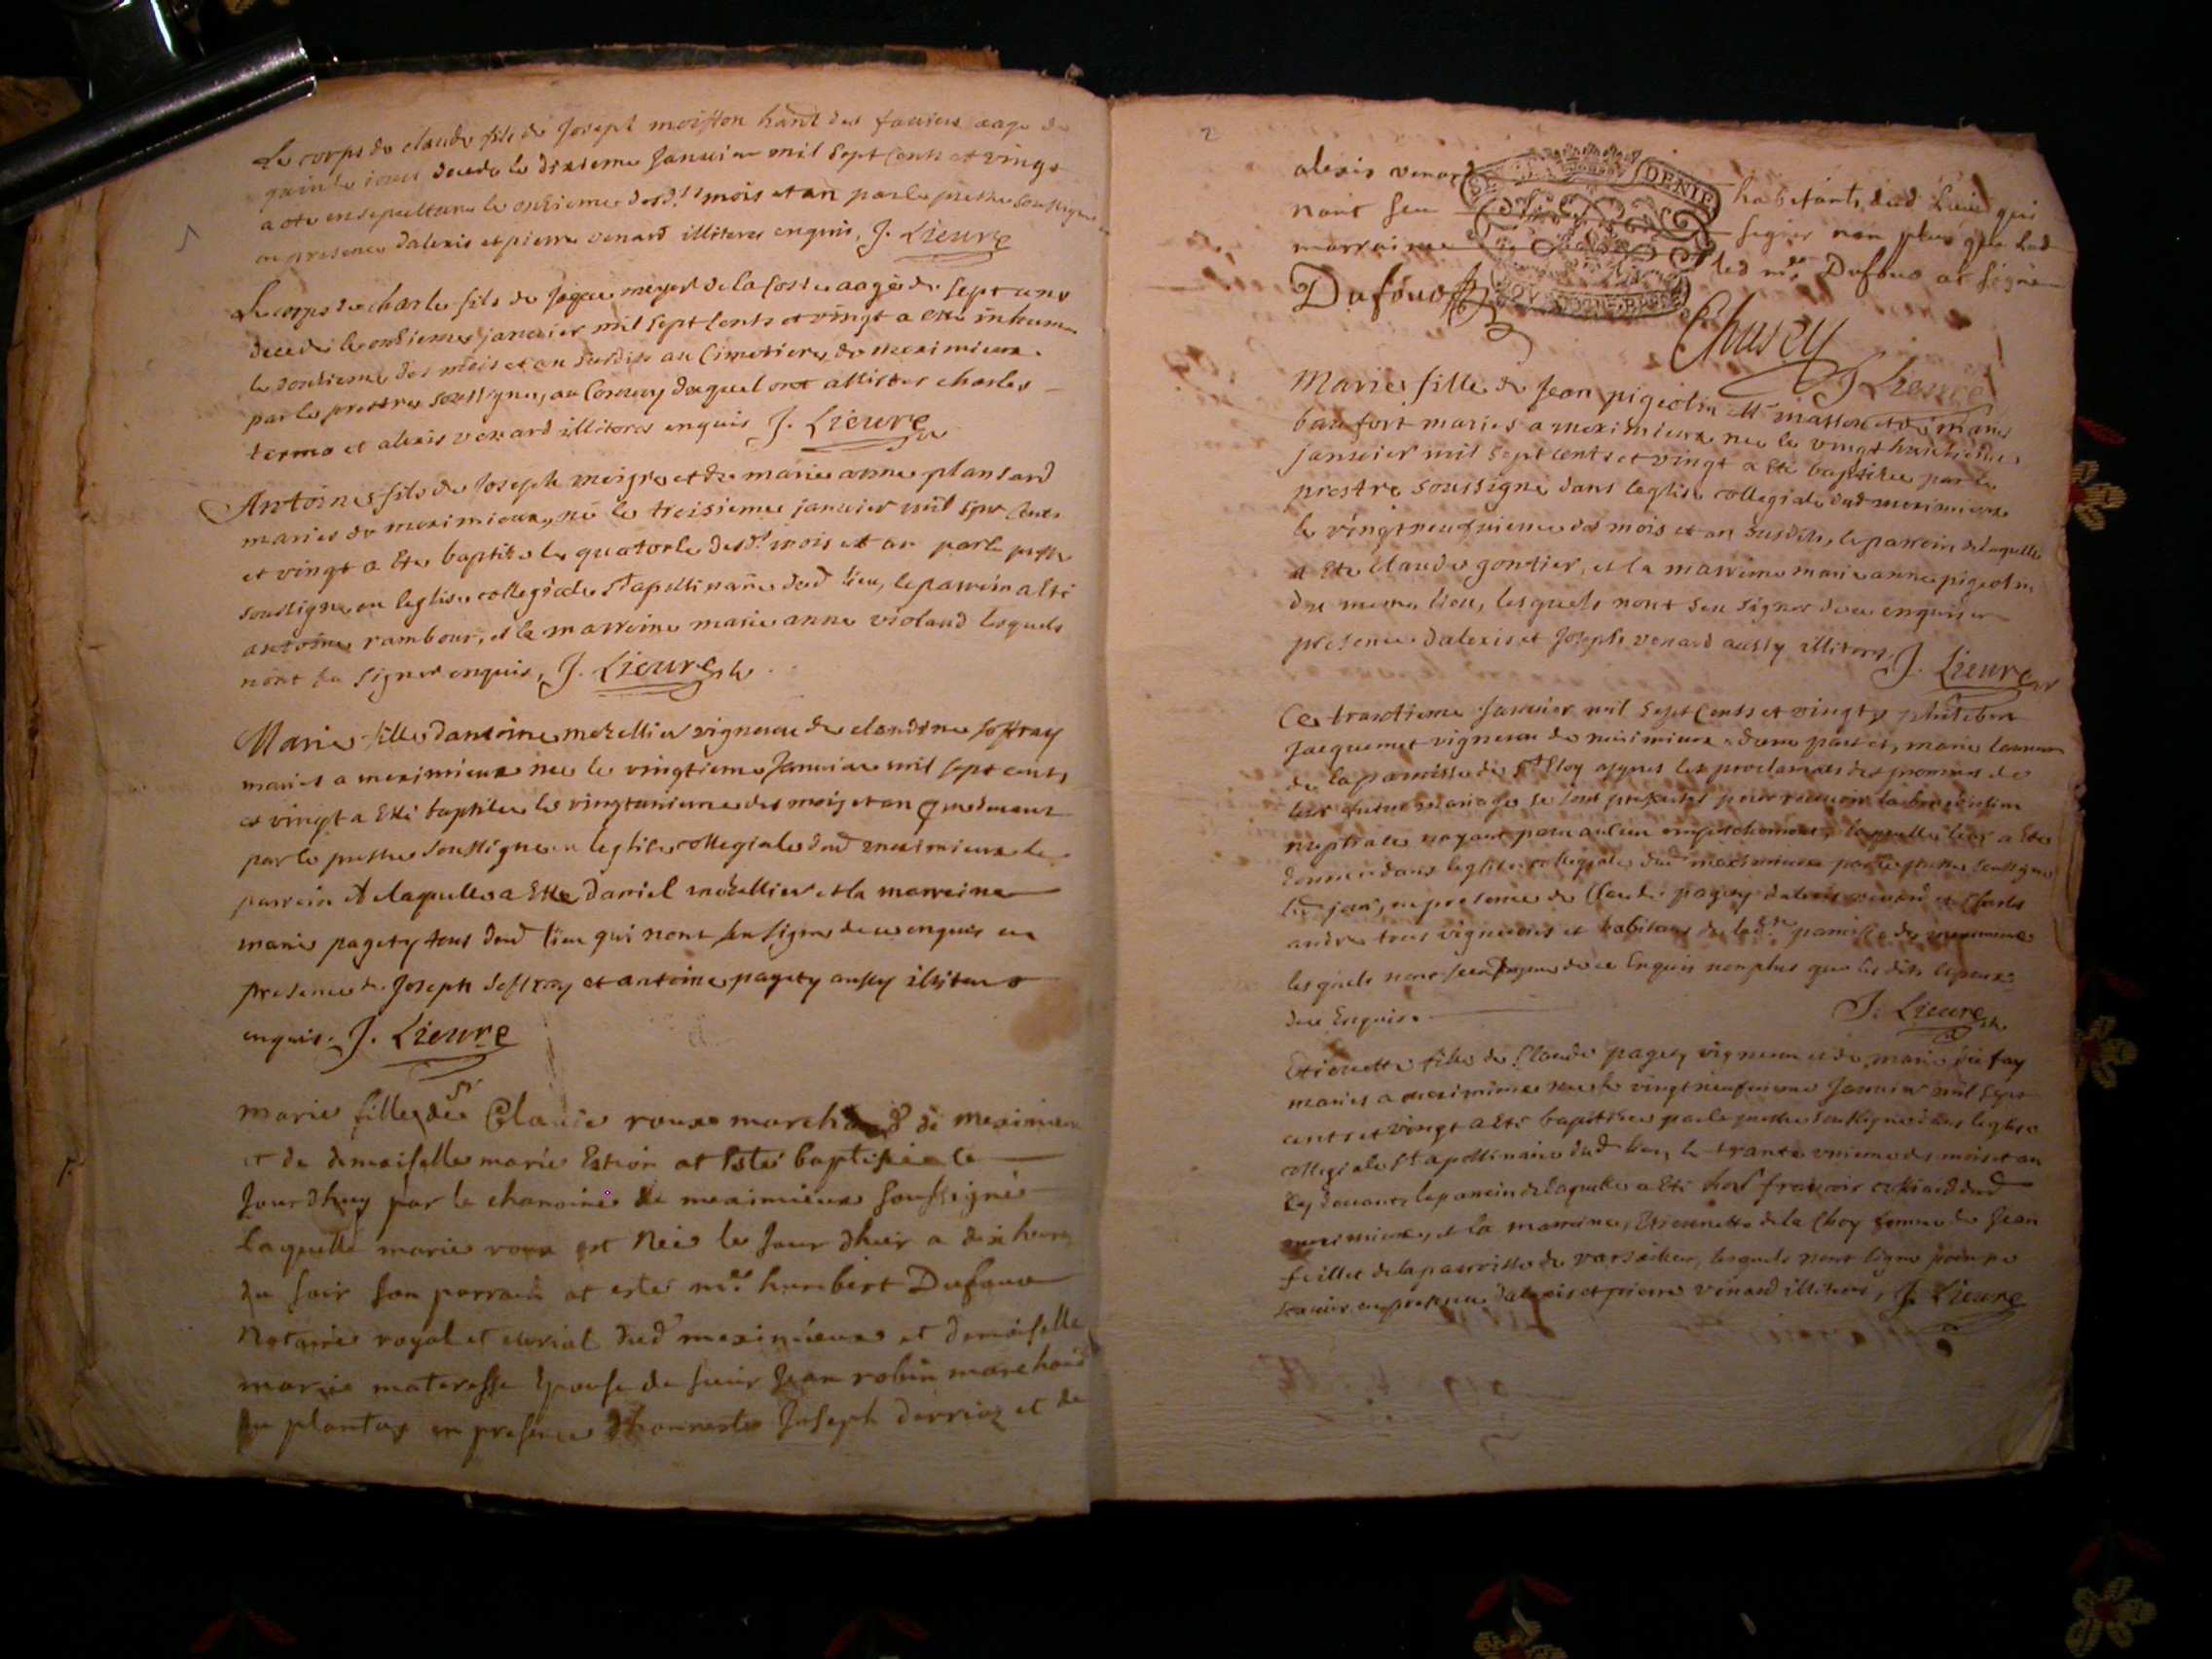 1
Le corps de claude fils de Joseph moisson habit des fauries aage de
quinze iours decede le dixieme Januier mil sept cents et vingt
a ete ensepulture le onzieme desd.ts mois et an par le prestre soussigné
en presence dalexis et pierre venard illiteres enquis, J. Lieure
Le corps de charle fils de Jaque meyer de la coste aagé de sept ans
decede le onzieme januier mil sept cents et vingt a ette inhume
le douzieme des mois et an susdits au Cimetiere de meximieux
par le prestre soussigne, au Conuoy duquel ont assistes charles
termo et alexis venard illiteres enquis J. Lieure
Antoine fils de Joseph meigre et de marie anne plantard
maries de meximieux, né le troisieme januier mil sept cents
et vingt a ete baptize le quatorze desd.ts mois et an par le prestre
soussigne en leglise collegiale St apollinaire dud lieu, le parrein a esté
antoine rambour, et la marreine marie anne violand lesquels
nont su signer enquis, J. Lieure
Marie fille dantoine mezellier vigneron et de claudine soffray
maries a meximieux nee le vingtieme Januier mil sept cents
et vingt a Etté baptizee le vingtunieme des mois et an que deuant
par le prestre soussigne en leglise collegiale dud meximieux le
parrein de laquelle a Ette Daniel mezellier et la marreine
marie pagety tous dud lieu qui nont seu signe de ce enquis en
presence de Joseph soffray et antoine pagety aussy illiteres
enquis. J. Lieure
marie fille de sr Claude roux marchand de meximieux
et de demoiselle marie Estion at esté baptisée le
Jourdhuy par le chanoine de meximieux soussigné
laquelle marie roux est née le Jour dhier a dix heures
du soir son parrain at esté me humbert Dufour
Notaire royal et curial dud meximieux et demoiselle
marie materesse Epouse de sieur Jean robin marchand
du plantay en presence dhonneste Joseph derrioz et de
2
alexis venard habitants dud Lieu qui
nont seu signer non plus que lad
marraine led me Dufour at signé
Dufour
Chusey
J Lieure
Marie fille de Jean pigeolin mtre masson et de marie
baufort maries a meximieux nee le vingthuictieme
januier mil sept cents et vingt a Eté baptizee par le
prestre soussigné dans leglise collegiale dud meximieux
le vingtneufuieme des mois et an susdits, le parrein de laquelle
a Ete Claude gontier, et la marreine marie anne pigeolin
du meme lieu, lesquels nont seu signer de ce enquis en
presence dalexis et Joseph venard aussy illiteres, J. Lieure
Ce trantieme Januier mil sept cents et vingt philibert
Jaquemet vigneron de meximieux dune part et, marie
de la parroisse de St Eloy apres les proclamats des promesses de
leur futur mariage se sont presentes pour receuoir la benediction
nuptiale nayant paru aucun empeschement, laquelle leur a Ete
donnee dans leglise collegiale dud meximieux par le prestre soussigne
led jour, en presence de Claude pagety dalexis venard et Charles
andre tous vignerons et habitans de lad.te parroisse de meximieux
lesquels nont seu signer de ce Enquis non plus que les dits espoux
de ce Enquis. J. Lieure
Etiennette fille de Claude pagety vigneron et de marie du fay
maries a meximieux nee le vingtneufuieme Januier mil sept
cents et vingt a Eté baptizee par le prestre soussigne dans leglise
collegiale St apollinaire dud lieu, le trante unieme des mois et an
cy deuant, le parrein de laquelle a Eté francois dud
meximieux, et la marreine, Etiennette de la Choy femme de Jean
feillet de la parroisse de varsailleu, lesquels nont signe pour ne
scauoir, en presence dalexis et pierre venard illiteres, J. Lieure